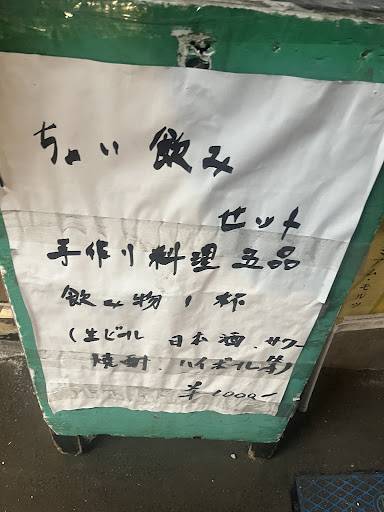 ちょい飲み
セット
手作り料理五品
飲み物1杯
(生ビール 日本酒.サワー
焼酎.ハイボール等)
¥1000-
ム・モルツ